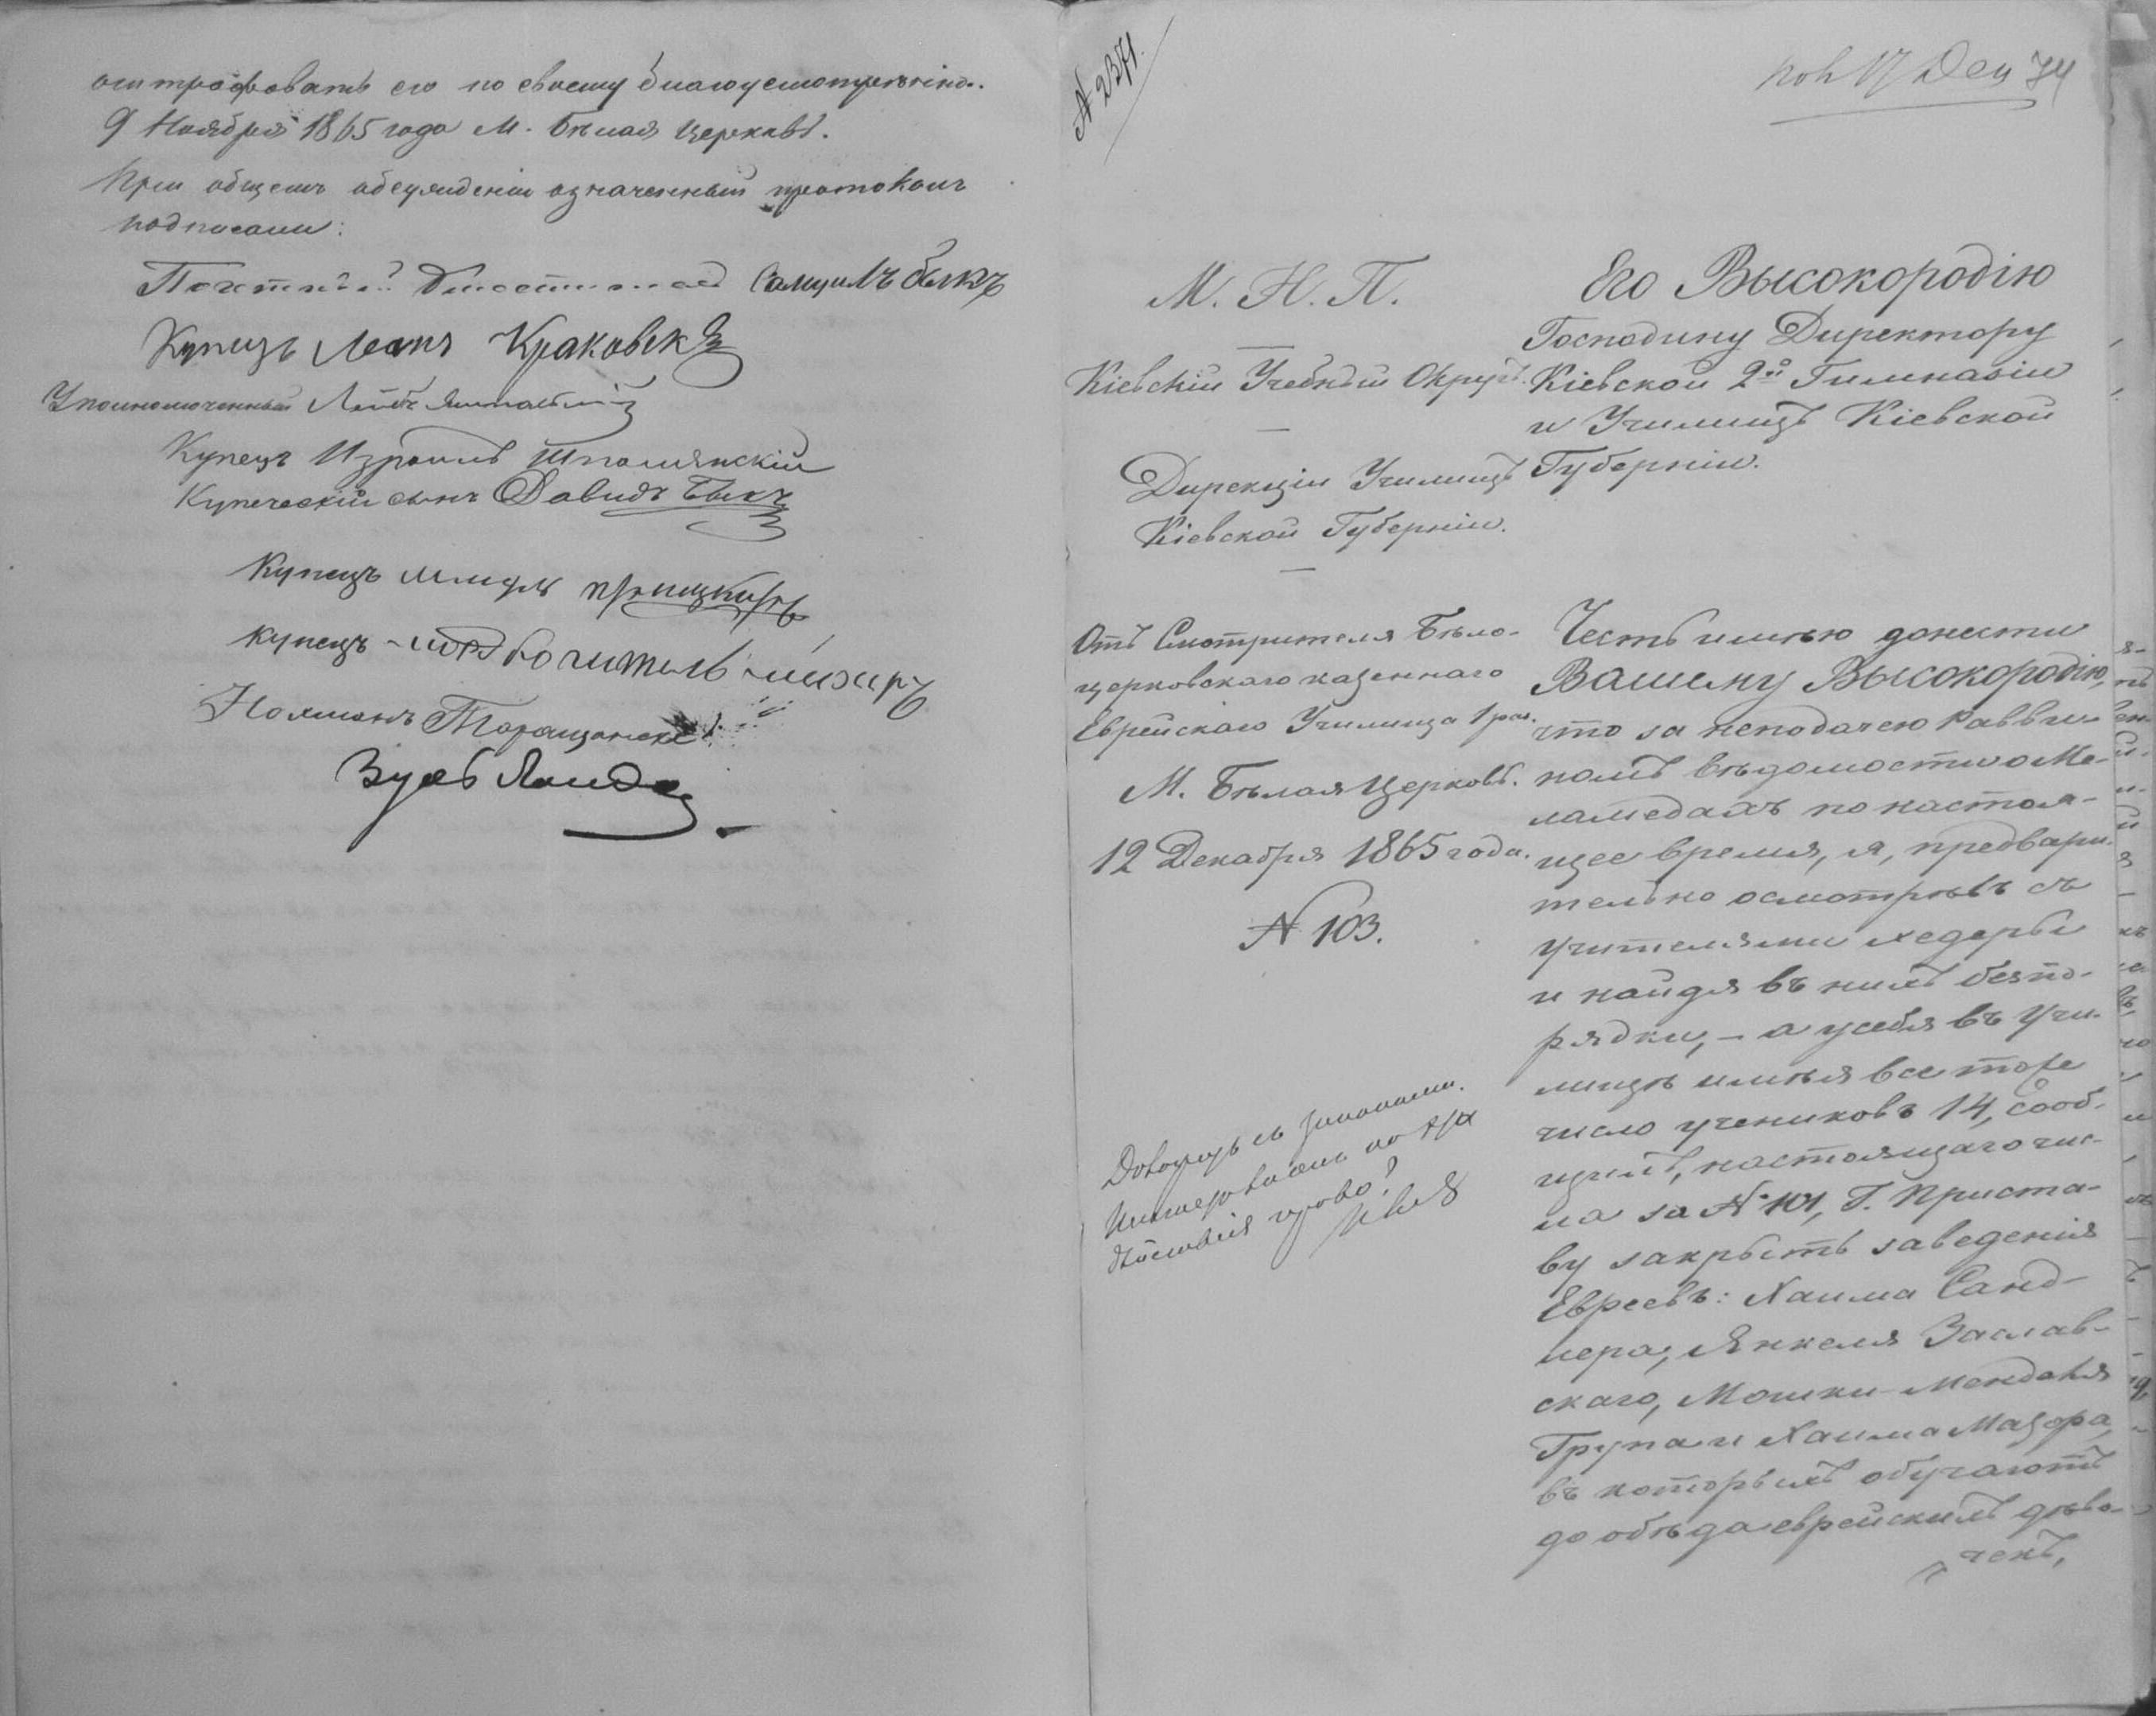 оштрафовать его по своему благоусмотрѣнію.
9 Ноября 1865 года М. Бѣлая Церковь.
При общемъ обсужденіи означенный протоколъ
подписали:
Самуилъ Быкъ
Купецъ Краковск
Уполномоченный Лейбъ
Купецъ Израиль Шполянскій
Купеческій сынъ Давидъ Быкъ
Купецъ
купецъ
Таращанск
№ 2371.
17 Дек 74
М. Н. П.
Кіевскій Учебный Округъ.
Дирекціи Училищъ
Кіевской Губерніи.
Отъ Смотрителя Бѣло-
церковскаго казеннаго
Еврейскаго Училища 1 раз.
М. Бѣлая Церковь.
12 Декабря 1865 года.
№ 103.
право?
Его Высокородію
Господину Директору
Кіевской 2ой Гимназіи
и Училищъ Кіевской
Губерніи.
Честь имѣю донести
Вашему Высокородію,
что за неподачею Равви-
номъ вѣдомости о Ме-
ламедахъ по настоя-
щее время, я, предвари-
тельно осмотрѣвъ съ
учителями хедеры
и найдя въ нихъ безпо-
рядки, – а у себя въ Учи-
лищѣ имѣя все тоже
число учениковъ 14, сооб-
щилъ, настоящаго чис-
ла за № 101, Г. Приста-
ву закрыть заведенія
Евреевъ: Хаима Санд-
лера, Янкеля Заслав-
скаго, Мошки-Менделя
Трупа и Хаима Мазора,
въ которыхъ обучаютъ
до обѣда еврейскихъ дѣво-
чекъ,